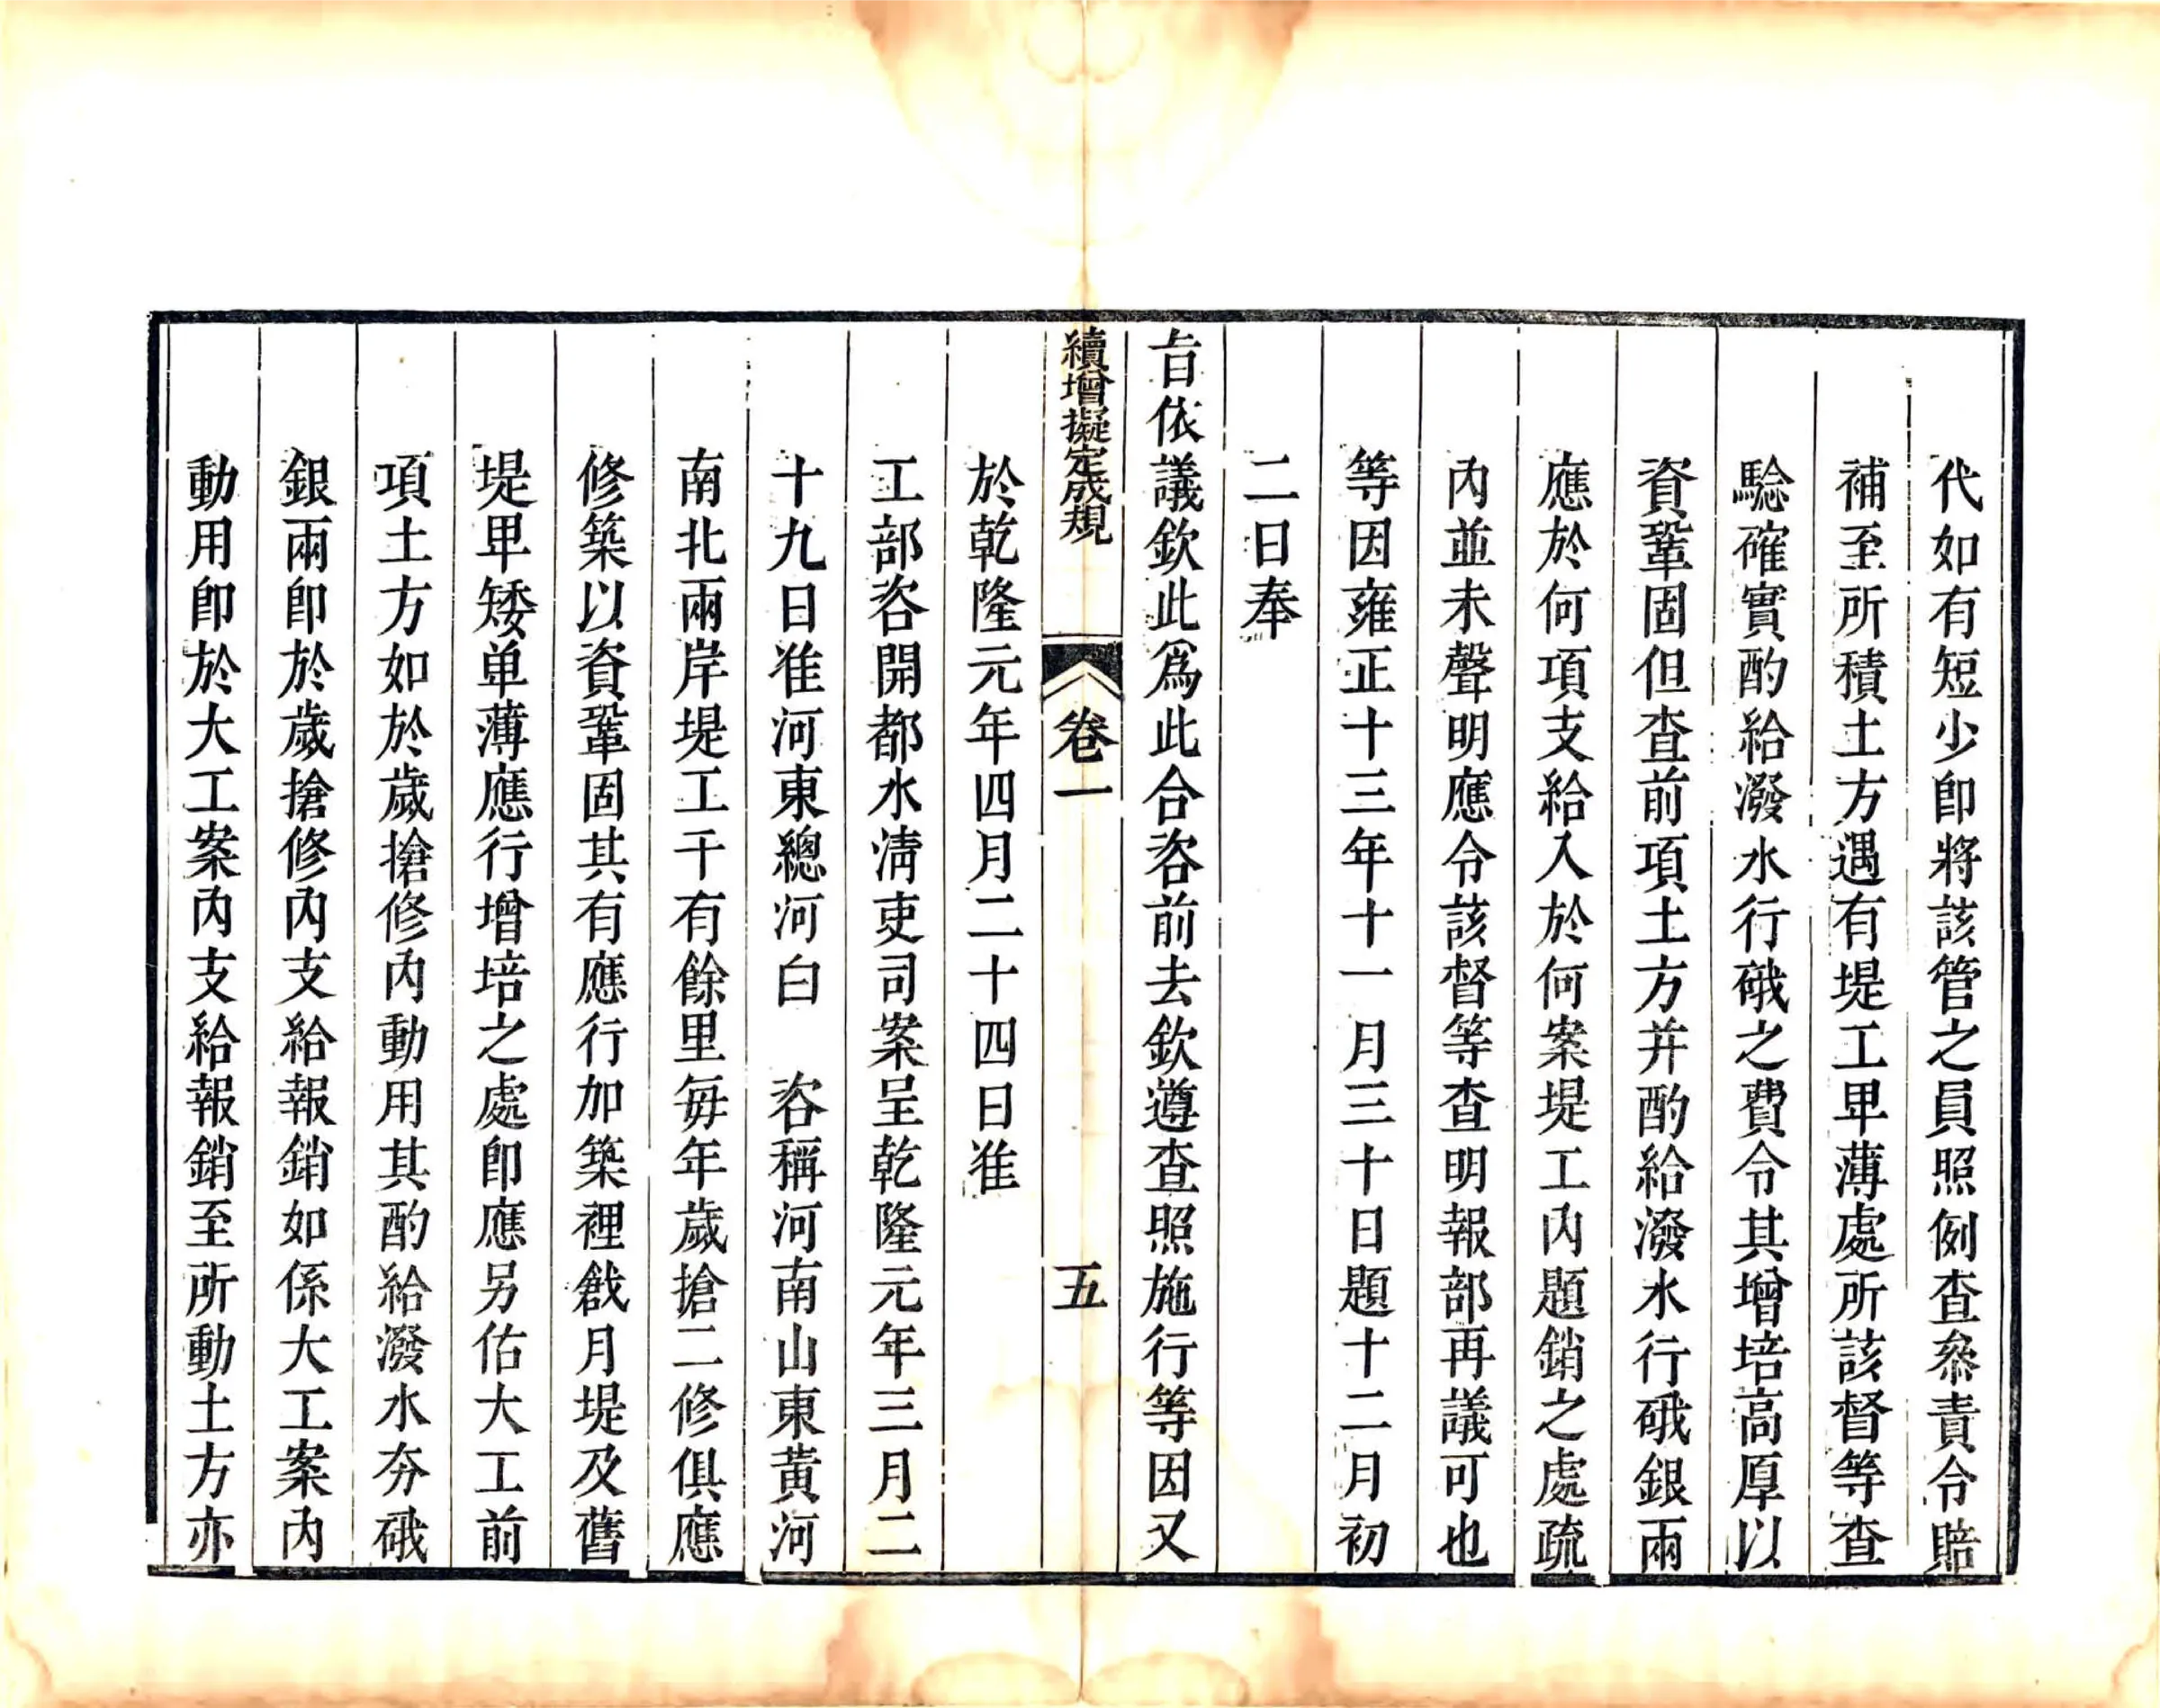 代如有短少卽將該管之員照例查叅責令賠
補至所積土方遇有堤工卑薄處所該督等查
騐確實酌給潑水行硪之費令其增培高厚以
資鞏固但查前項土方并酌給潑水行硪銀兩
應於何項支給入於何案堤工內題銷之處疏
內並未聲明應令該督等查明報部再議可也
等因雍正十三年十一月三十日題十二月初
二日奉
旨依議欽此爲此合咨前去欽遵查照施行等因又
續增擬定成規 卷一 五
於乾隆元年四月二十四日准
工部咨開都水清吏司案呈乾隆元年三月二
十九日准河東總河白 咨稱河南山東黃河
南北兩岸堤工千有餘里每年歲搶二修俱應
修築以資鞏固其有應行加築裡戧月堤及舊
堤卑矮单薄應行增培之處卽應另估大工前
項土方如於歲搶修內動用其酌給潑水夯硪
銀兩卽於歲搶修內支給報銷如係大工案內
動用卽於大工案內支給報銷至所動土方亦